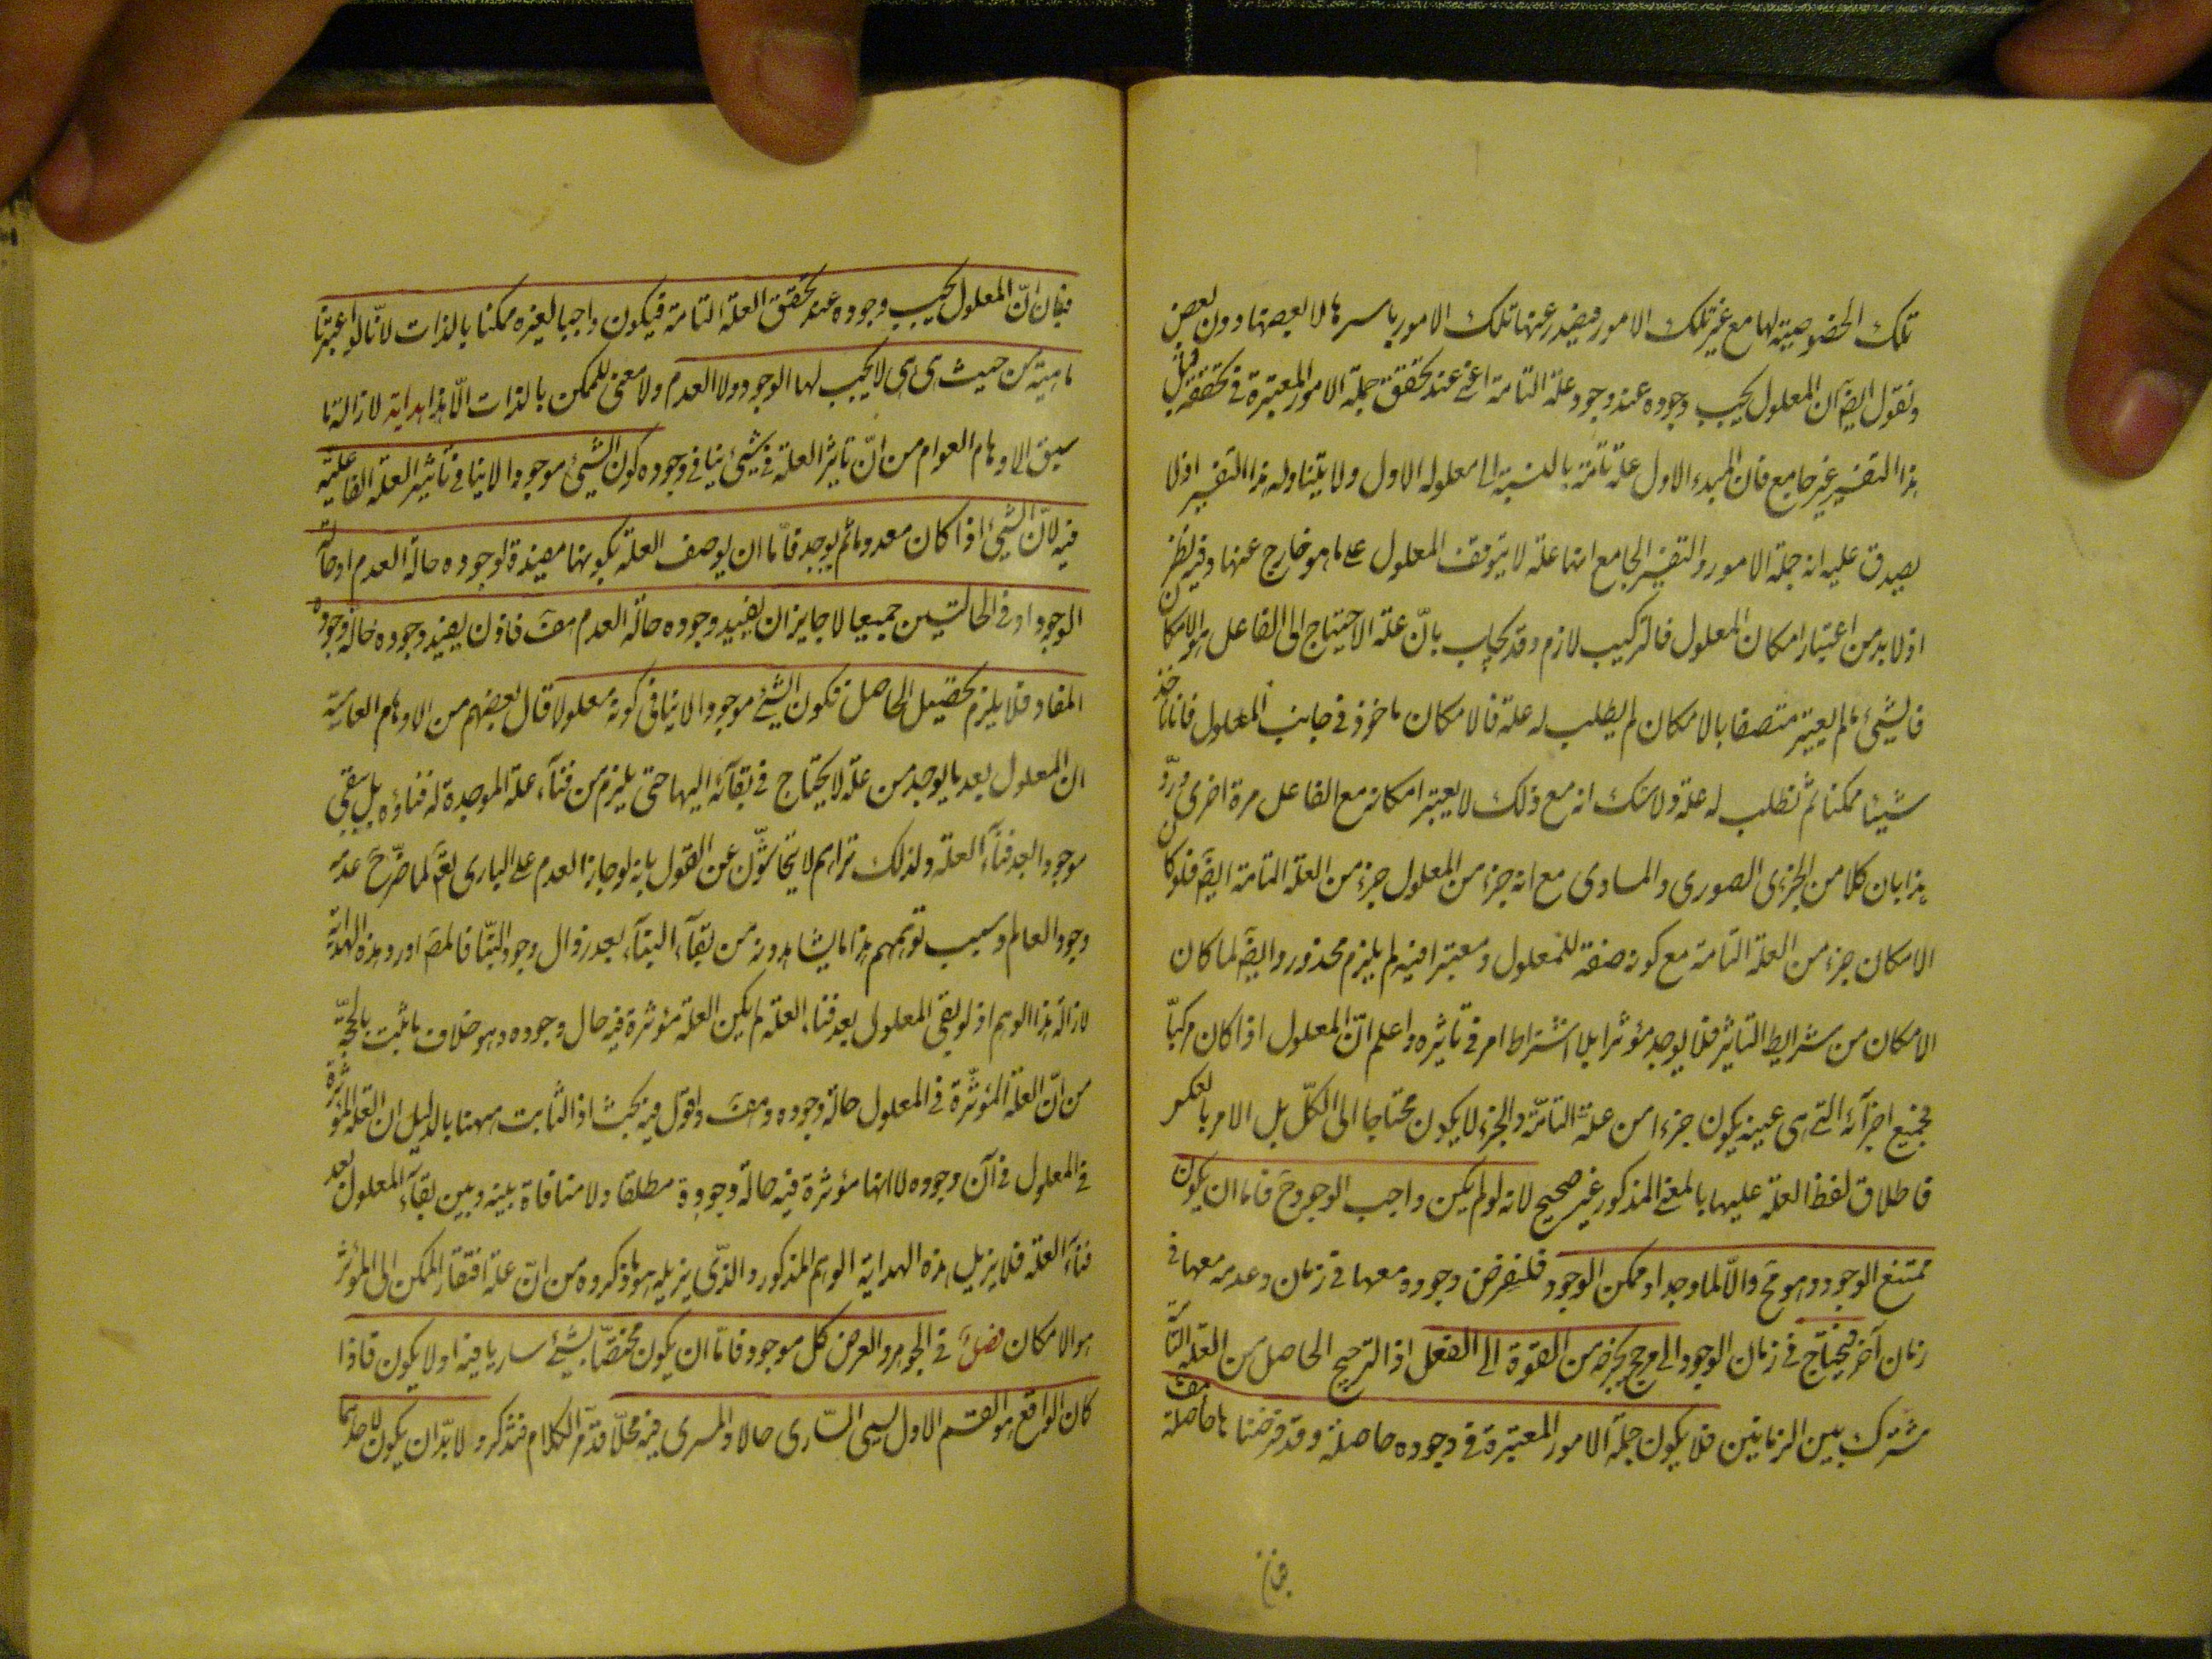 تلك الخصوصية لها مع غير تلك الامور فيصدر عنها تلك الامور باسرها لا بعضها دون بعض
ونقول ايضا ان المعلول يجب وجوده عند وجود علته التامة اعنى عند تحقق جملة الامور المعتبرة فى تحققه قيل
هذا التفسير غير جامع فان المبدء الاول علة تامة بالنسبة الى معلوله الاول ولا يتناوله هذا التفسير اذ لا
يصدق عليه انه جملة الامور والتفسير الجامع انها علة لا يتوقف المعلول على ما هو خارج عنها وفيه نظر
اذ لا بد من اعتبار امكان المعلول فالتركيب لازم وقد يجاب بانّ علة الاحتياج الى الفاعل هو الامكان
فالشىء ما لم يعتبر متصفا بالامكان لم يطلب له علة فالامكان ماخوذ فى جانب المعلول فانا نأخذ
شيئا ممكنا ثم نطلب له علة ولا شك انه مع ذلك لا يعتبر امكانه مع الفاعل مرة اخرى وردّ
هذا بان كلا من الجزء الصورى والمادى مع انه جزء من المعلول جزء من العلة التامة ايضا فلو كان
الامكان جزء من العلة التامة مع كونه صفة للمعلول ومعتبرا فيه لم يلزم محذور وايضا لما كان
الامكان من شرايط التاثير فلا يوجد مؤثر بلا اشتراط امر فى تاثيره واعلم انّ المعلول اذا كان مركبّا
فجميع اجزآئه التى هى عينه يكون جزءا من علته التامّة والجزء لا يكون محتاجا الى الكلّ بل الامر بالعكس
فاطلاق لفظ العلة عليها بالمعنى المذكور غير صحيح لانه لو لم يكن واجب الوجود ح فاما ان يكون
ممتنع الوجود وهو مح والّا لما وجد او ممكن الوجود فلنفرض وجوده معها فى زمان وعدمه معها فى
زمان آخر فيحتاج فى زمان الوجود الى مرجح يخرجه من القوة الى الفعل اذ الترجيح الحاصل من العلة التامة
مشترك بين الزمانين فلا يكون جملة الامور المعتبرة فى وجوده حاصلة وقد فرضناها حاصلة هف
فبان
فبان انّ المعلول يجب وجوده عند تحقق العلة التامة فيكون واجبا لغيره ممكنا بالذات لانّا لو اعتبرنا
ماهيته من حيث هى هى لا يجب لها الوجود ولا العدم ولا معنى للممكن بالذات الّا هذا هداية لازالة ما
سبق الاوهام العوام من انّ تاثير العلة فى شىء ينافى وجوده كون الشىء موجودا لا ينافى تأثير العلة الفاعلية
فيه لانّ الشىء اذا كان معدوما ثم يوجد فامّا ان يوصف العلة بكونها مفيدة لوجوده حالة العدم او حالة
الوجود او فى الحالتين جميعا لا جايز ان يفيد وجوده حالة العدم هف فاذن يفيد وجوده حالة وجوده
المفاد فلا يلزم تحصيل الحاصل فكون الشىء موجودا لا ينافى كونه معلولا قال بعضهم من الاوهام العامية
ان المعلول بعد ما يوجد من علة لا يحتاج فى بقآئه اليها حتى يلزم من فنآء علة الموجدة له فناؤه بل يبقى
موجودا بعد فنآء العلة ولذلك تراهم لا يتحاشون عن القول بانه لو جاز العدم على البارى تعم لما ضرّ عدمه
وجود العالم وسبب توهمهم هذا ما يشاهدونه من بقآء البنآء بعد زوال وجود البنّا فالمص اورد هذه الهداية
لازالة هذا الوهم اذ لو بقى المعلول بعد فناء العلة لم يكن العلة مؤثرة فيه حال وجوده وهو خلاف ما ثبت بالحجة
من انّ العلة المؤثّرة فى المعلول حالة وجوده وهف واقول فيه بحث اذ الثابت ههنا بالدليل ان العلة المؤثرة
فى المعلول فى آن وجوده لا انها مؤثرة فيه حالة وجوده مطلقا ولا منافاة بينه وبين بقآء المعلول بعد
فنآء العلة فلا يزيل هذه الهداية الوهم المذكور والذّى يزيله هو ما ذكروه من انّ علة افتقار الممكن الى المؤثر
هو الامكان فصل فى الجوهر والعرض كل موجود فامّا ان يكون مختصّا بشىء ساريا فيه او لا يكون فاذا
كان الواقع هو القسم الاول يسمى السّارى حالا والمسرى فيه محلّا قد مرّ الكلام فتذكر ولا بدّ ان يكون لاحدهما